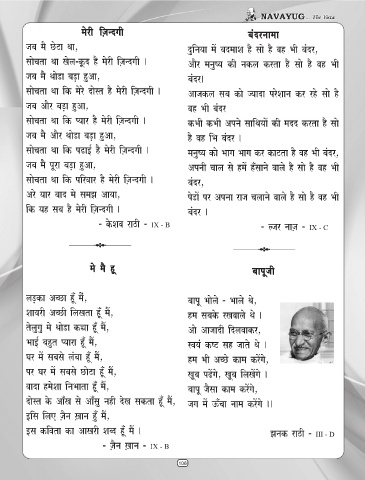 NAVAYUG - The Voice
मेरी ज़िन्दगी
जब मै छेटा था,
सोचता था खेल-कूद है मेरी ज़िन्दगी ।
जब मै थोडा बड़ा हुआ,
सोचता था कि मेरे दोस्त है मेरी ज़िन्दगी ।
जब और बड़ा हुआ,
सोचता था कि प्यार है मेरी ज़िन्दगी ।
जब मै और थोडा बड़ा हुआ,
सोचता था कि पढाई है मेरी ज़िन्दगी ।
जब मै पूरा बड़ा हुआ,
सोचता था कि परिवार है मेरी ज़िन्दगी ।
अरे यार बाद मे समझ आया,
कि यह सब है मेरी ज़िन्दगी ।
- केशव राठी - IX - B
मे मै हू
लड़का अच्छा हूँ मैं,
शायरी अच्छी लिखता हूँ मैं,
तेलुगु मे थोडा कच्चा हूँ मैं,
भाई बहुत प्यारा हूँ मैं,
घर में सबसे लंबा हूँ मैं,
पर घर में सबसे छोटा हूँ मैं,
वादा हमेशा निभाता हूँ मैं,
दोस्त के आँख से आँसु नही देख सकता हूँ मैं,
इसि लिए ज़ैन ख़ान हूँ मैं,
इस कविता का आखरी शब्द हूँ मैं ।
- ज़ैन ख़ान - IX - B
बंदरनामा
दुनिया में बदमाश है सो है वह भी बंदर,
और मनुष्य की नकल करता है सो है वह भी
बंदर।
आजकल सब को ज्यादा परेशान कर रहे सो है
वह भी बंदर
कभी कभी अपने साथियों की मदद करता है सो
है वह भि बंदर ।
मनुष्य को भाग भाग कर काटता है वह भी बंदर,
अपनी चाल से हमें हँसाने वाले है सो है वह भी
बंदर,
पेडों पर अपना राज चलाने वाले है सो है वह भी
बंदर ।
- ज्जर नाज़ - IX - C
बापूजी
बापू भोले - भाले थे,
हम सबके रखवाले थे ।
ओ आजादी दिलवाकर,
स्वयं कष्ट सह जाते थे ।
हम भी अच्छे काम करेंगे,
खूब पढेंगे, खूब लिखेंगे ।
बापू जैसा काम करेंगे,
जग में ऊँचा नाम करेंगे ।।
झनक राठी - III - D